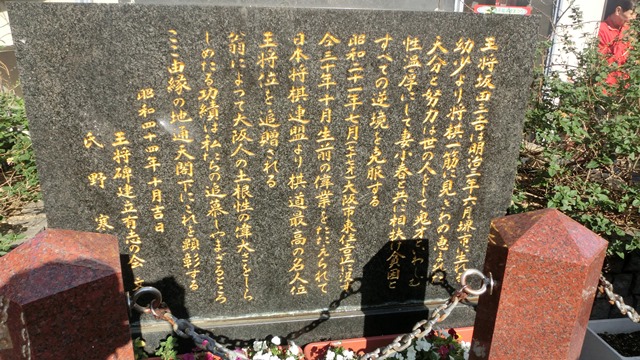 王将坂田三吉は明治三年六月堺市に生れ
幼少より将棋一筋に見きわめ恵まれた
天分と努力は世の人をして鬼才といわしむ
性温厚にして妻小春と共に相扶け貧困と
すべての逆境を克服する
昭和二十一年七月(七十七才)大阪市東住吉に没す
仝三十年十月生前の偉業をたたえられて
日本将棋連盟より棋道最高の名人位
王将位を追贈さる
翁によって大阪人の土根性の偉大さをしら
しめたる功績は私たちの追慕しつまざるところ
ここ由縁の地通天閣下にこれを顕彰する
昭和四十四年十月吉日
王将碑建立有志の会
氏野寒